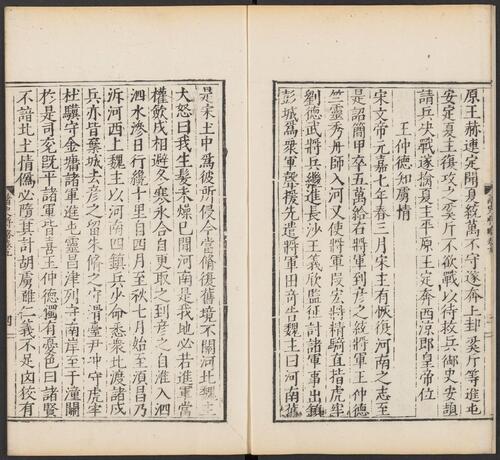 原王赫連定聞夏敗統萬不守遂奔上邽奚斤等進屯
安定夏主復攻之奚斤不欲戰以待救兵御史安頡
請兵决戰遂擒夏主平原王定奔西涼郎皇帝位
王仲德知虜情
宋文帝元嘉七年春三月宋主有恢復河南之志至
是詔簡甲卒五萬給右將軍到彦之統將軍王仲德
竺靈秀舟師入河又使將軍段宏將精騎直指虎牢
劉德武將兵繼進長沙王義欣監征討諸軍事出鎮
彭城爲衆軍聲援先遣將軍田奇告魏主曰河南舊
是宋土中爲彼所侵今當脩復舊境不關河北魏主
大怒曰我生髮未燥已聞河南是我地必若進軍當
權歛戍相避冬寒氷合自更取之到彦之自淮入泗
泗水滲日行纔十里自四月至秋七月始至須昌乃
泝河西上魏主以河南四鎮兵少命悉衆北渡諸戍
兵亦皆棄城去彦之留朱脩之守滑臺尹冲守虎牢
杜驥守金墉諸軍進屯靈昌津列守南岸至于潼關
於是司兖旣平諸軍皆喜王仲德獨有憂色曰諸賢
不諳北土情僞必墮其計胡虜雖仁義不足凶狡有